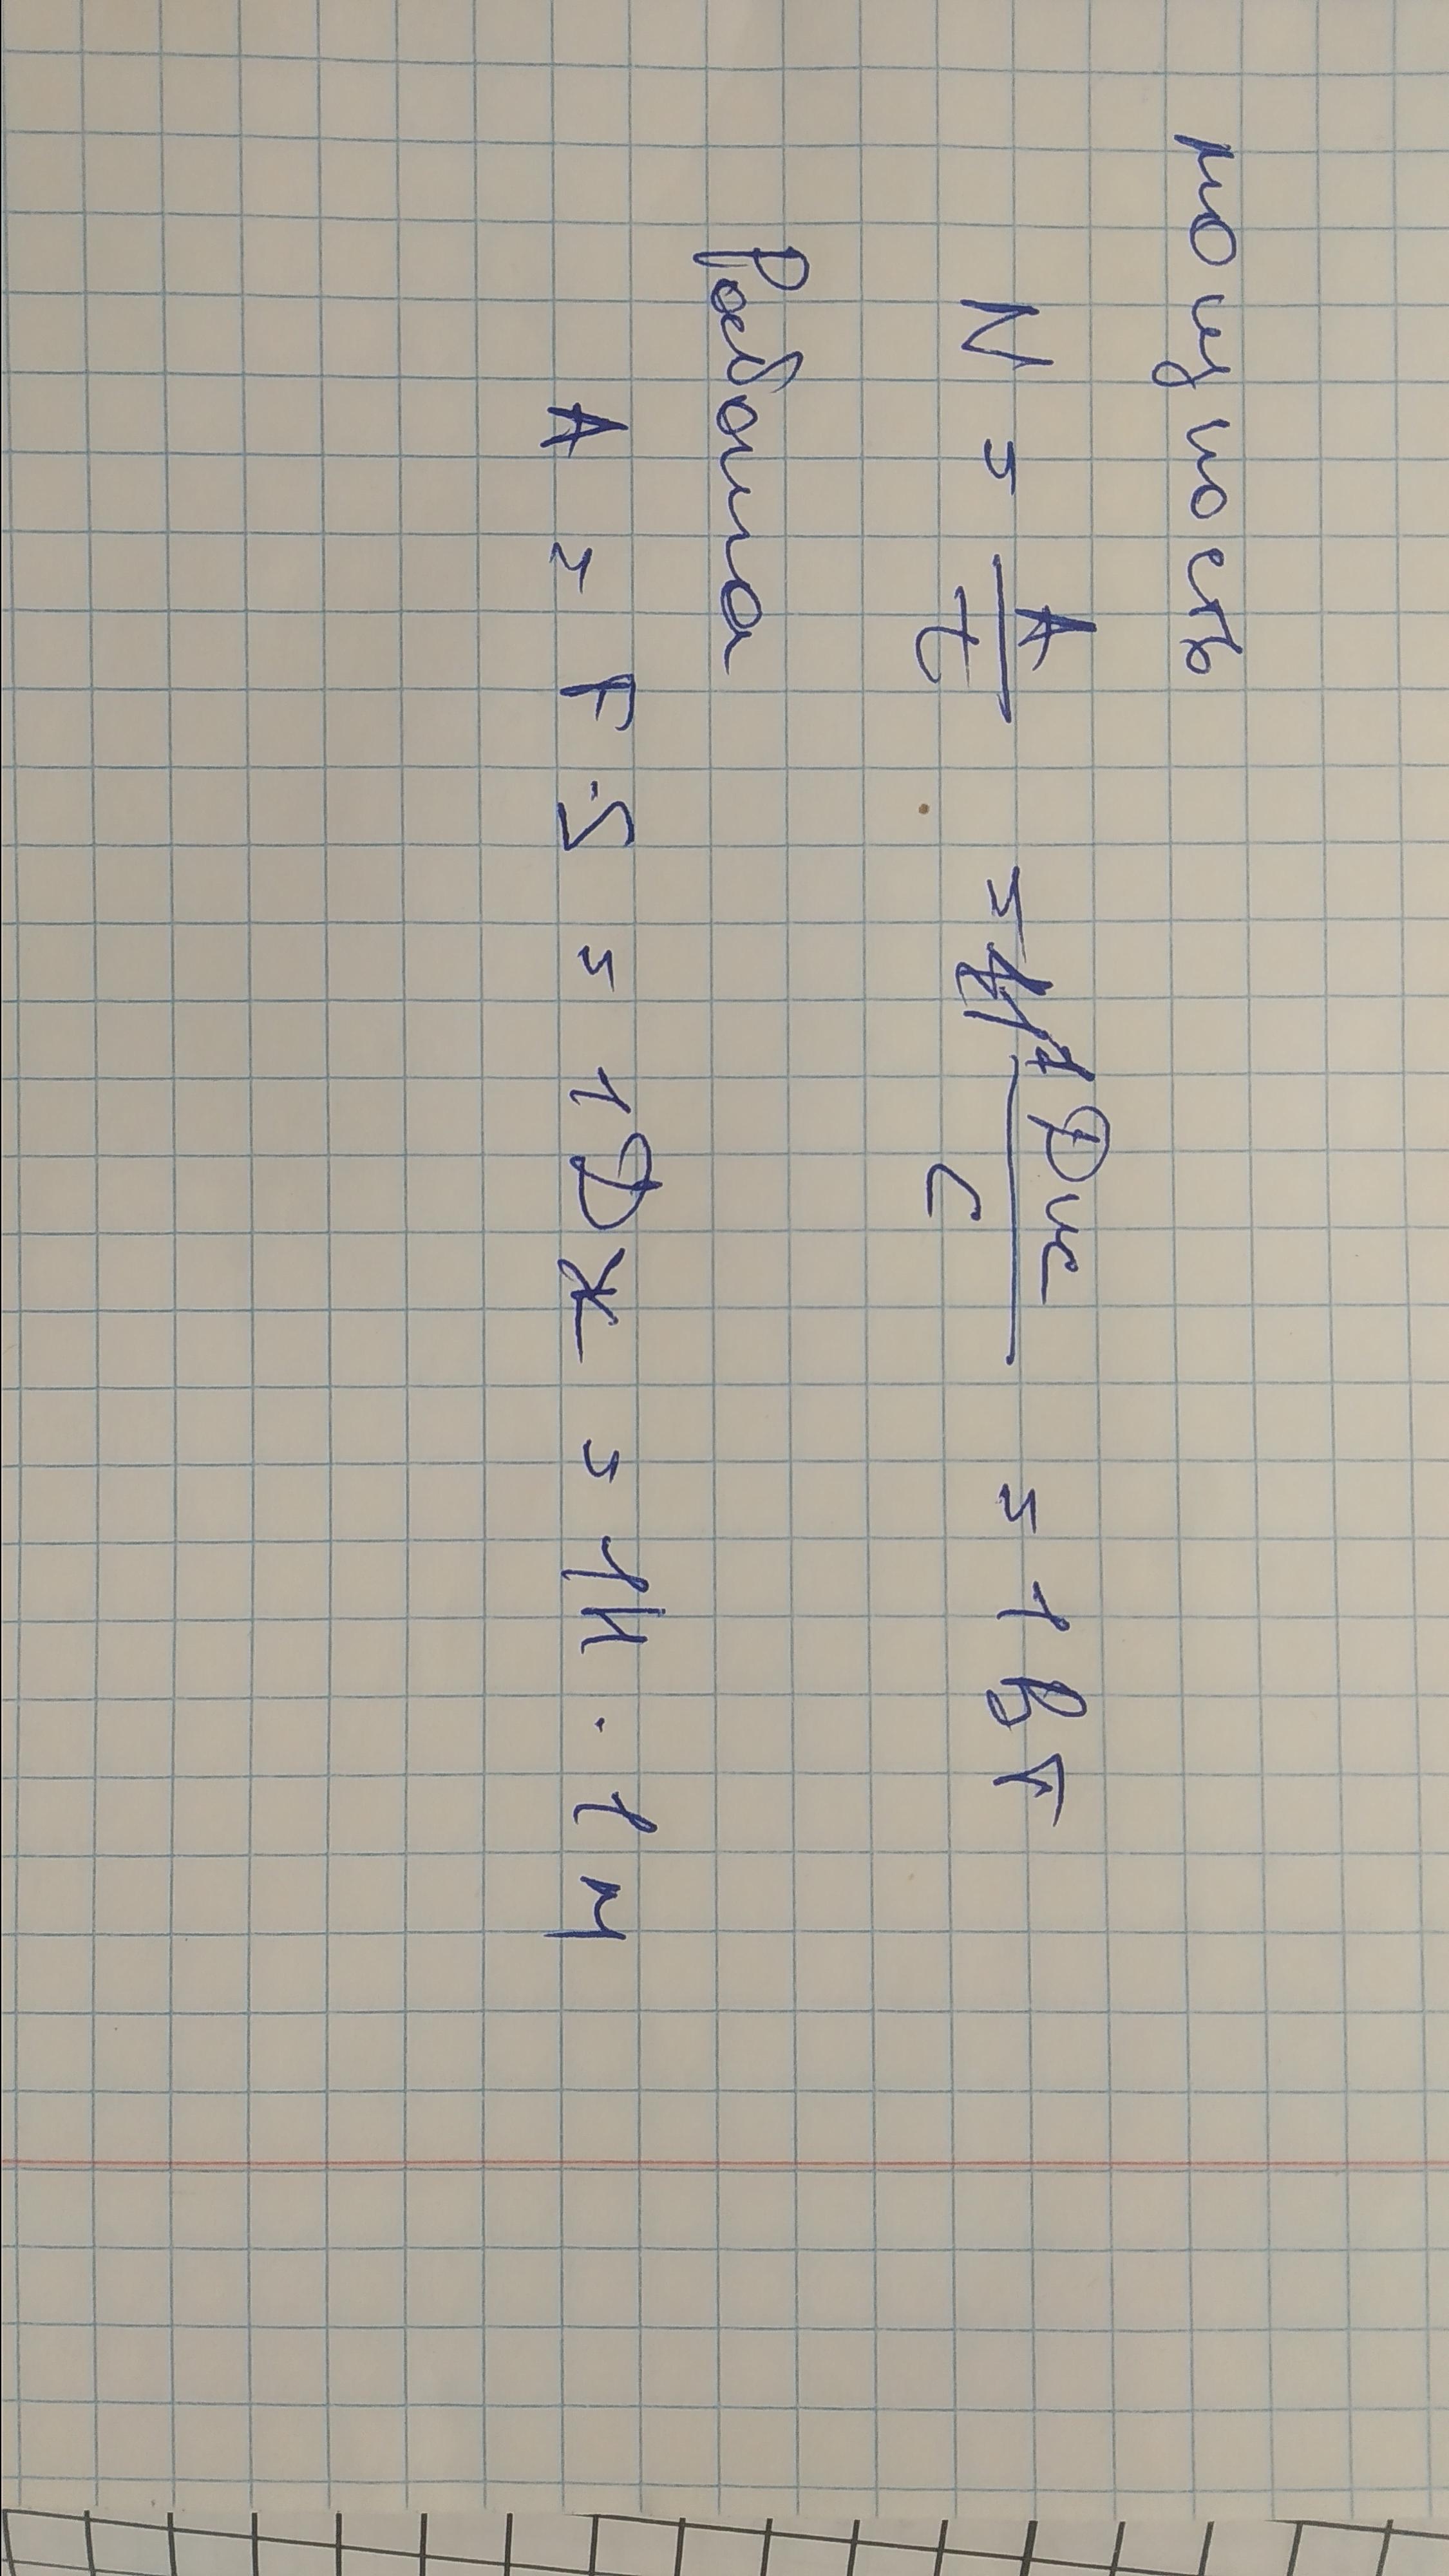 мощность
N = A/t = 1 Дж/с = 1 Вт
Работа
A = F · S = 1 Дж = 1Н · 1 м